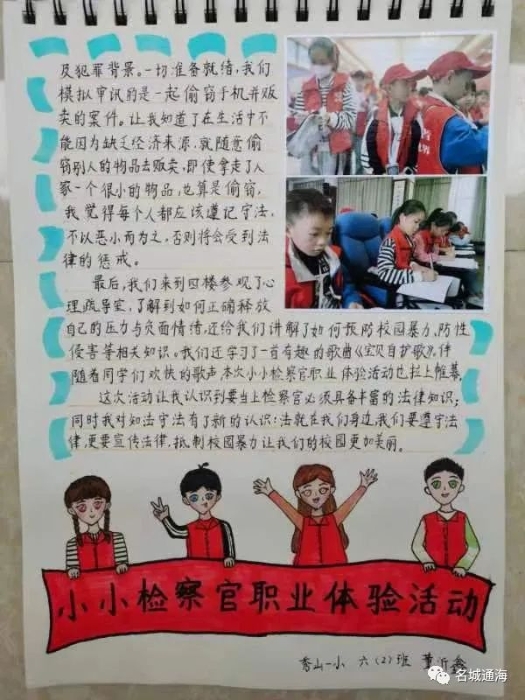 及犯罪背景。一切准备就绪，我们
模拟审讯的是一起偷窃手机并贩
卖的案件。让我知道了在生活中不
能因为缺乏经济来源，就随意偷
窃别人的物品去贩卖，即使拿走了人
家一个很小的物品，也算是偷窃，
我觉得每个人都应该遵记守法，
不以恶小而为之，否则将会受到法
律的惩戒。
最后，我们来到四楼参观了心
理疏导室，了解到如何正确释放
自己的压力与负面情绪，还给我们讲解了如何预防校园暴力、防性
侵害等相关知识。我们还学习了一首有趣的歌曲《宝贝自护歌》，伴
随着同学们欢快的歌声本次小小检察官职业体验活动也拉上帷幕。
这次活动让我认识到要当上检察官必须具备丰富的法律知识；
同时我对知法守法有了新的认识：法就在我们身边，我们要遵守法
律，更要宣传法律，抵制校园暴力让我们的校园更加美丽。
小小检察官职业体验活动
秀山一小 六（2）班 董
名城通海